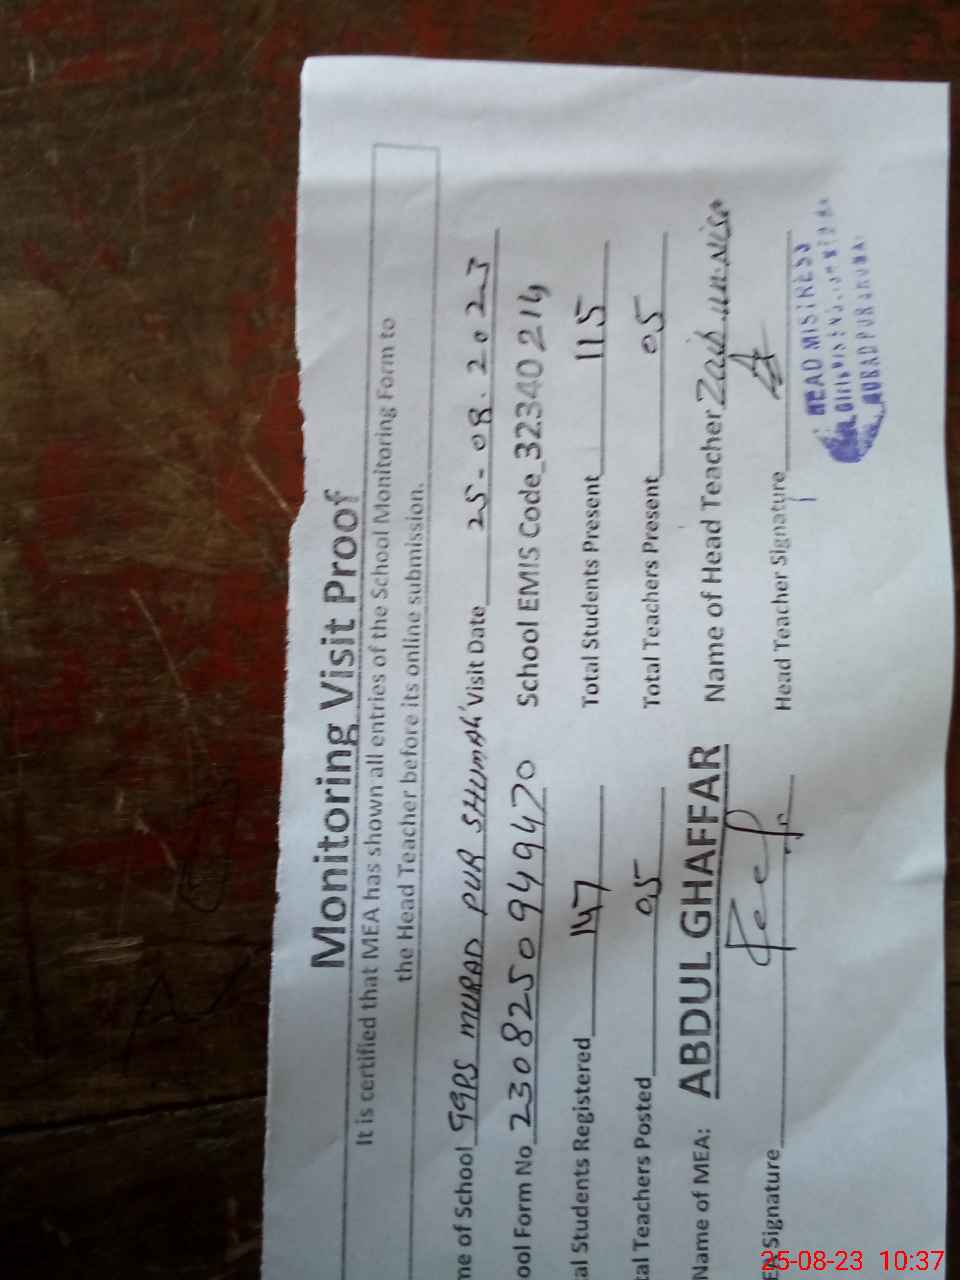 Monitoring Visit Proof
It is certified that MEA has shown all entries of the School Monitoring Form to
the Head Teacher before its online submission.
me of School GGPS MURAD PUR SHUMALI Visit Date 25-08.2023
ool Form No 2308250949470 School EMIS Code 32340214
al Students Registered 147 Total Students Present 115
tal Teachers Posted 05 Total Teachers Present 05
Name of MEA: ABDUL GHAFFAR Name of Head Teacher Zaib-un-Nisa
EA Signature Head Teacher Signature
HEAD MISTRESS
MURAD PUR
25-08-23 10:37